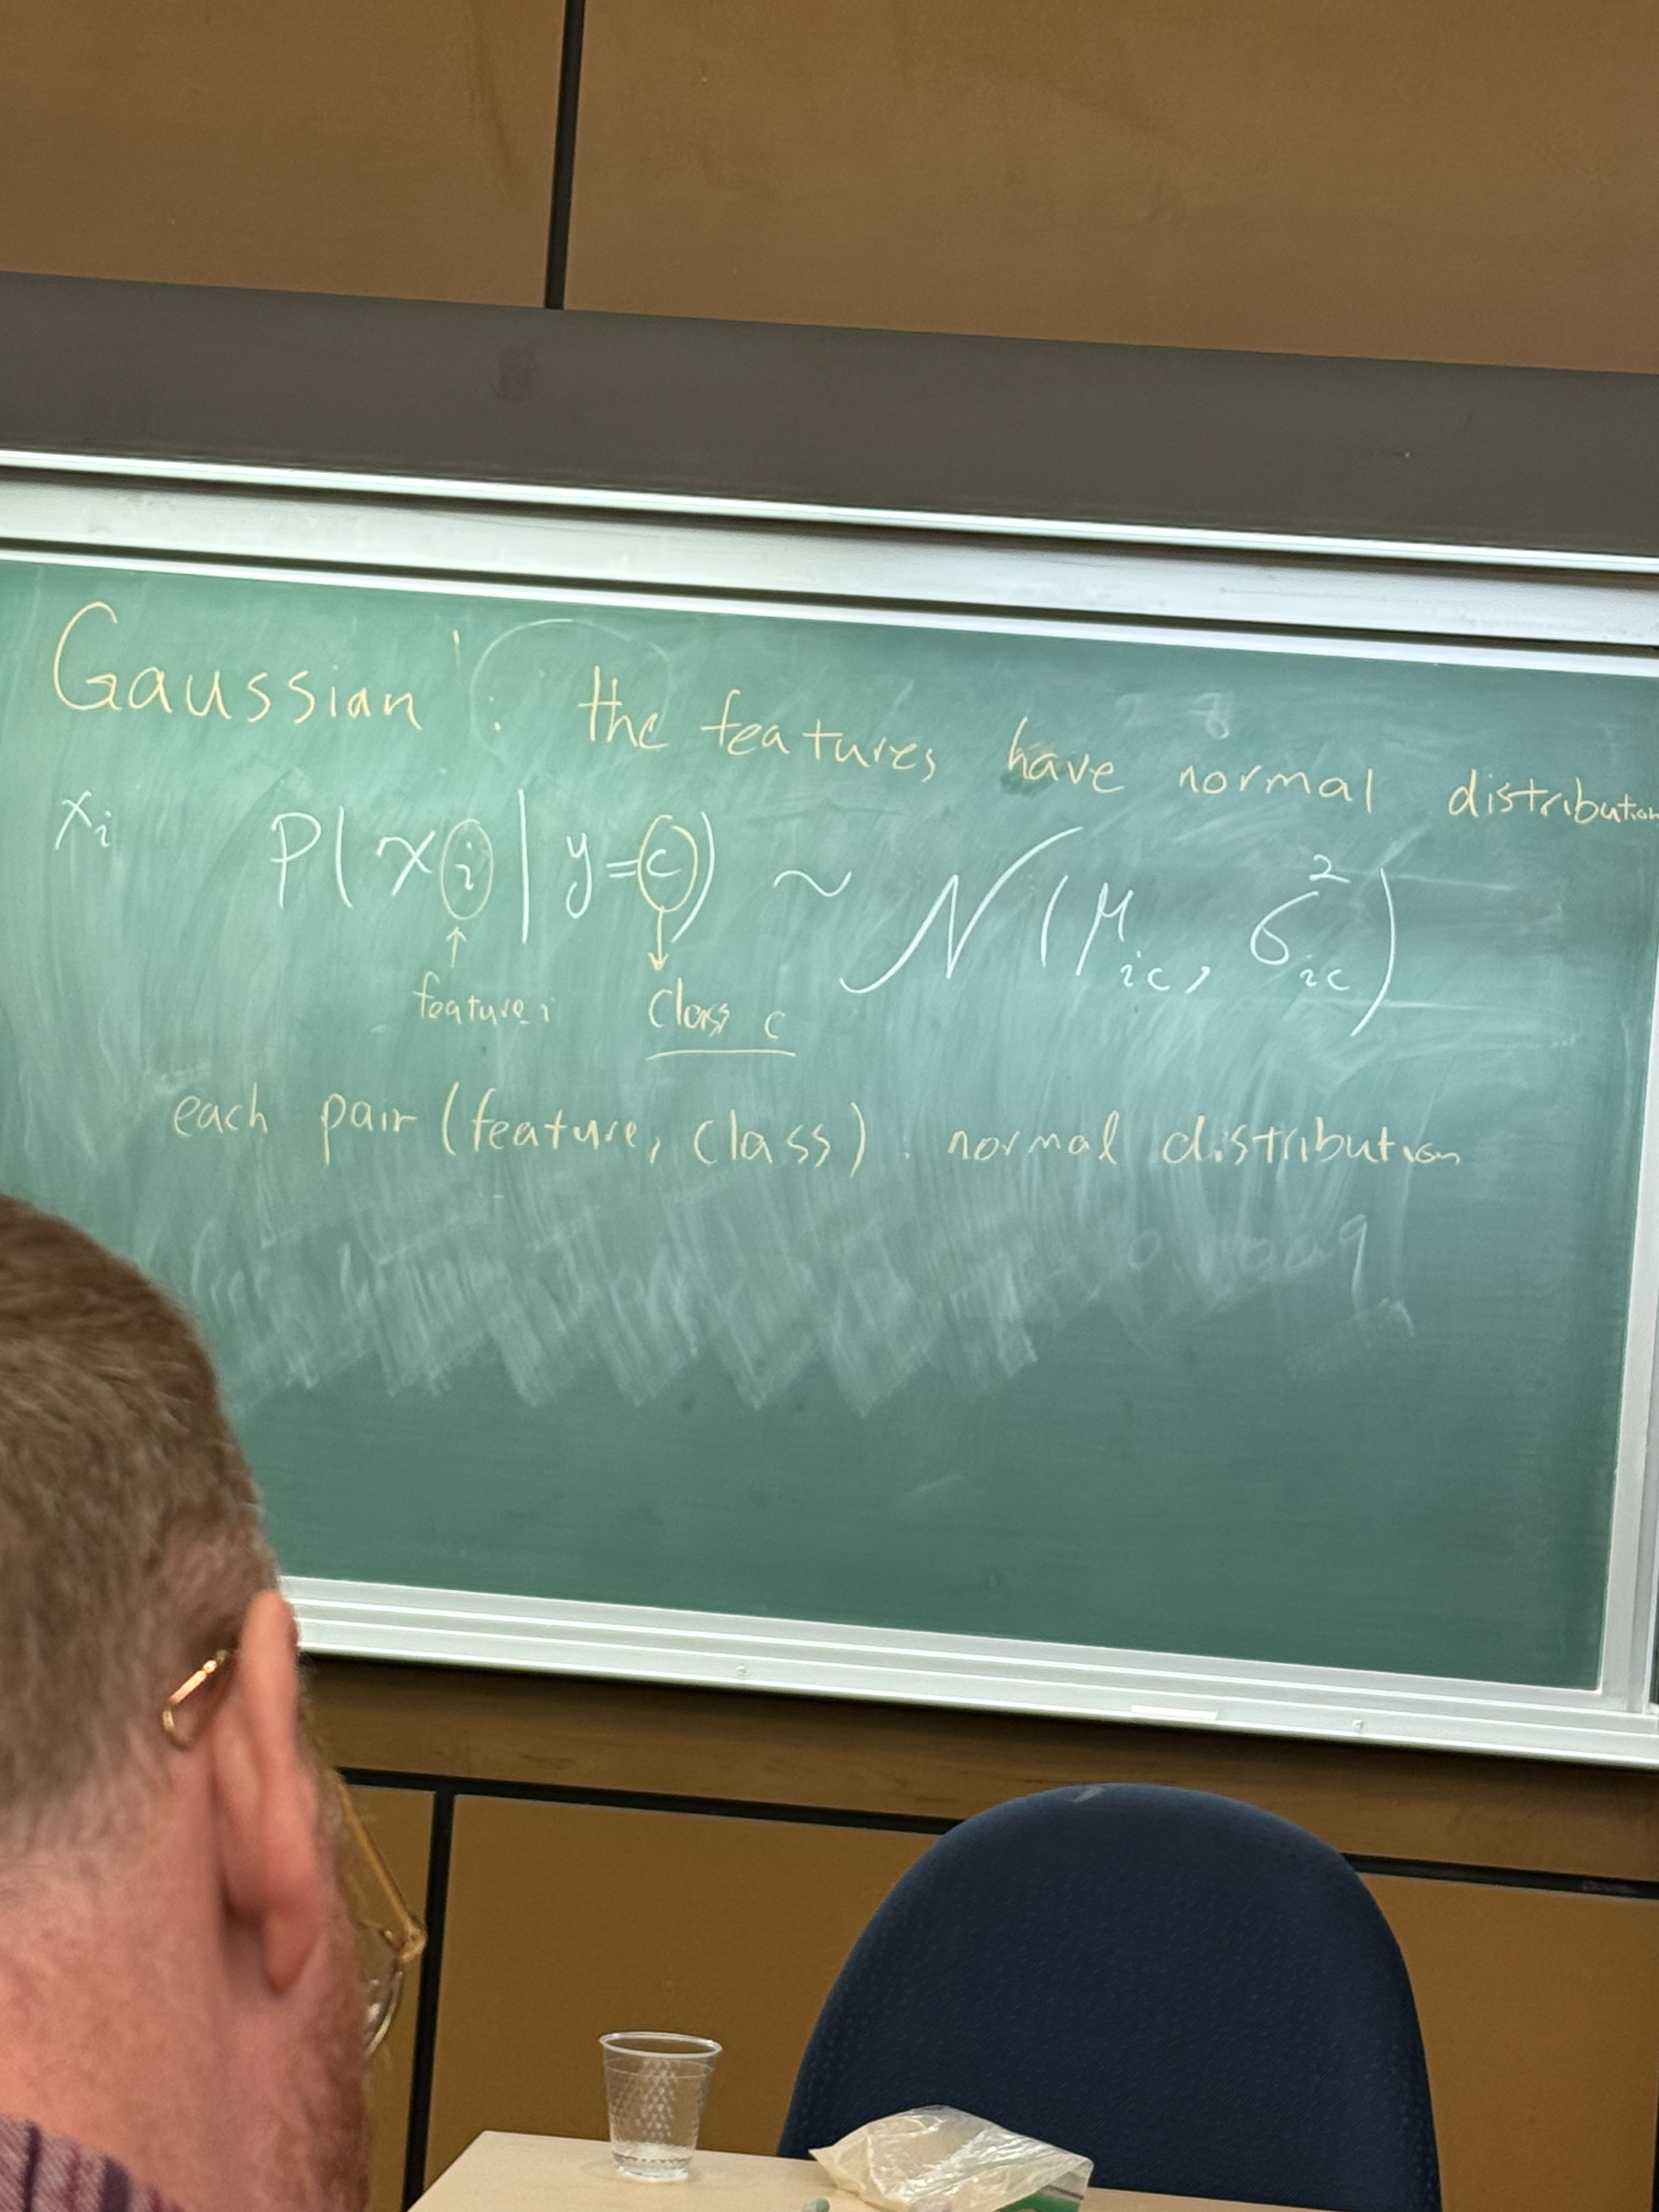 Gaussian : the features have normal distribution
xi P( xi | y=c) ~ N (μic, σ²ic)
feature i class c
each pair (feature, class) : normal distribution